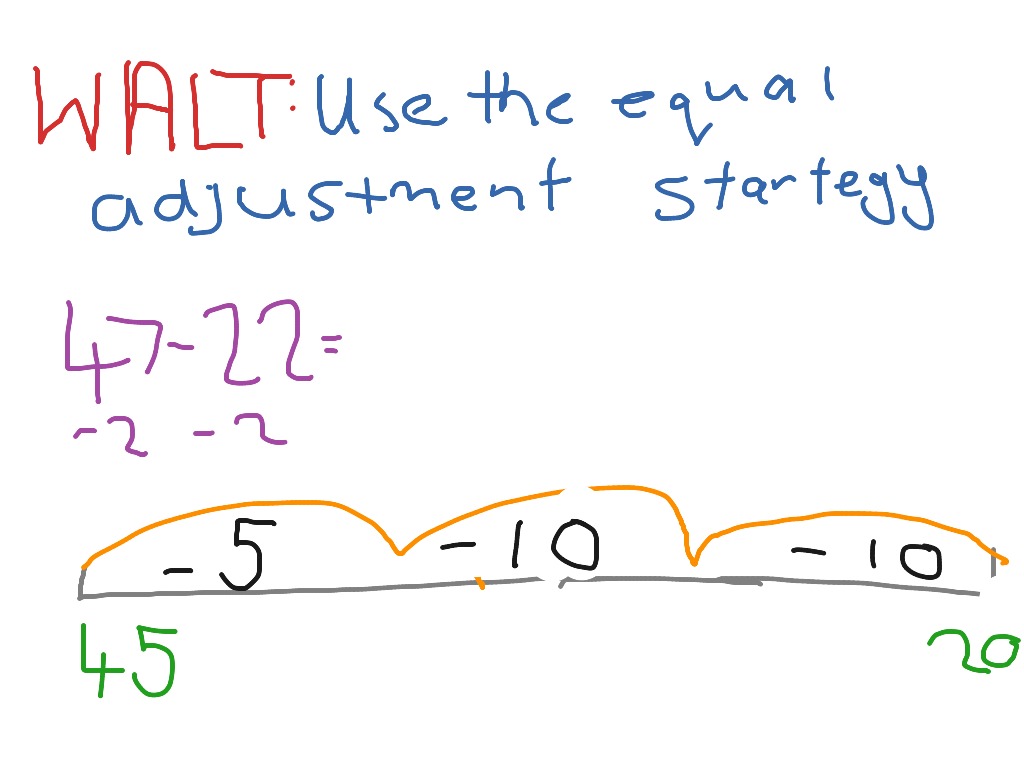 WALT: Use the equal
adjustment startegy
47-22=
-2 -2
-5 -10 -10
45 20